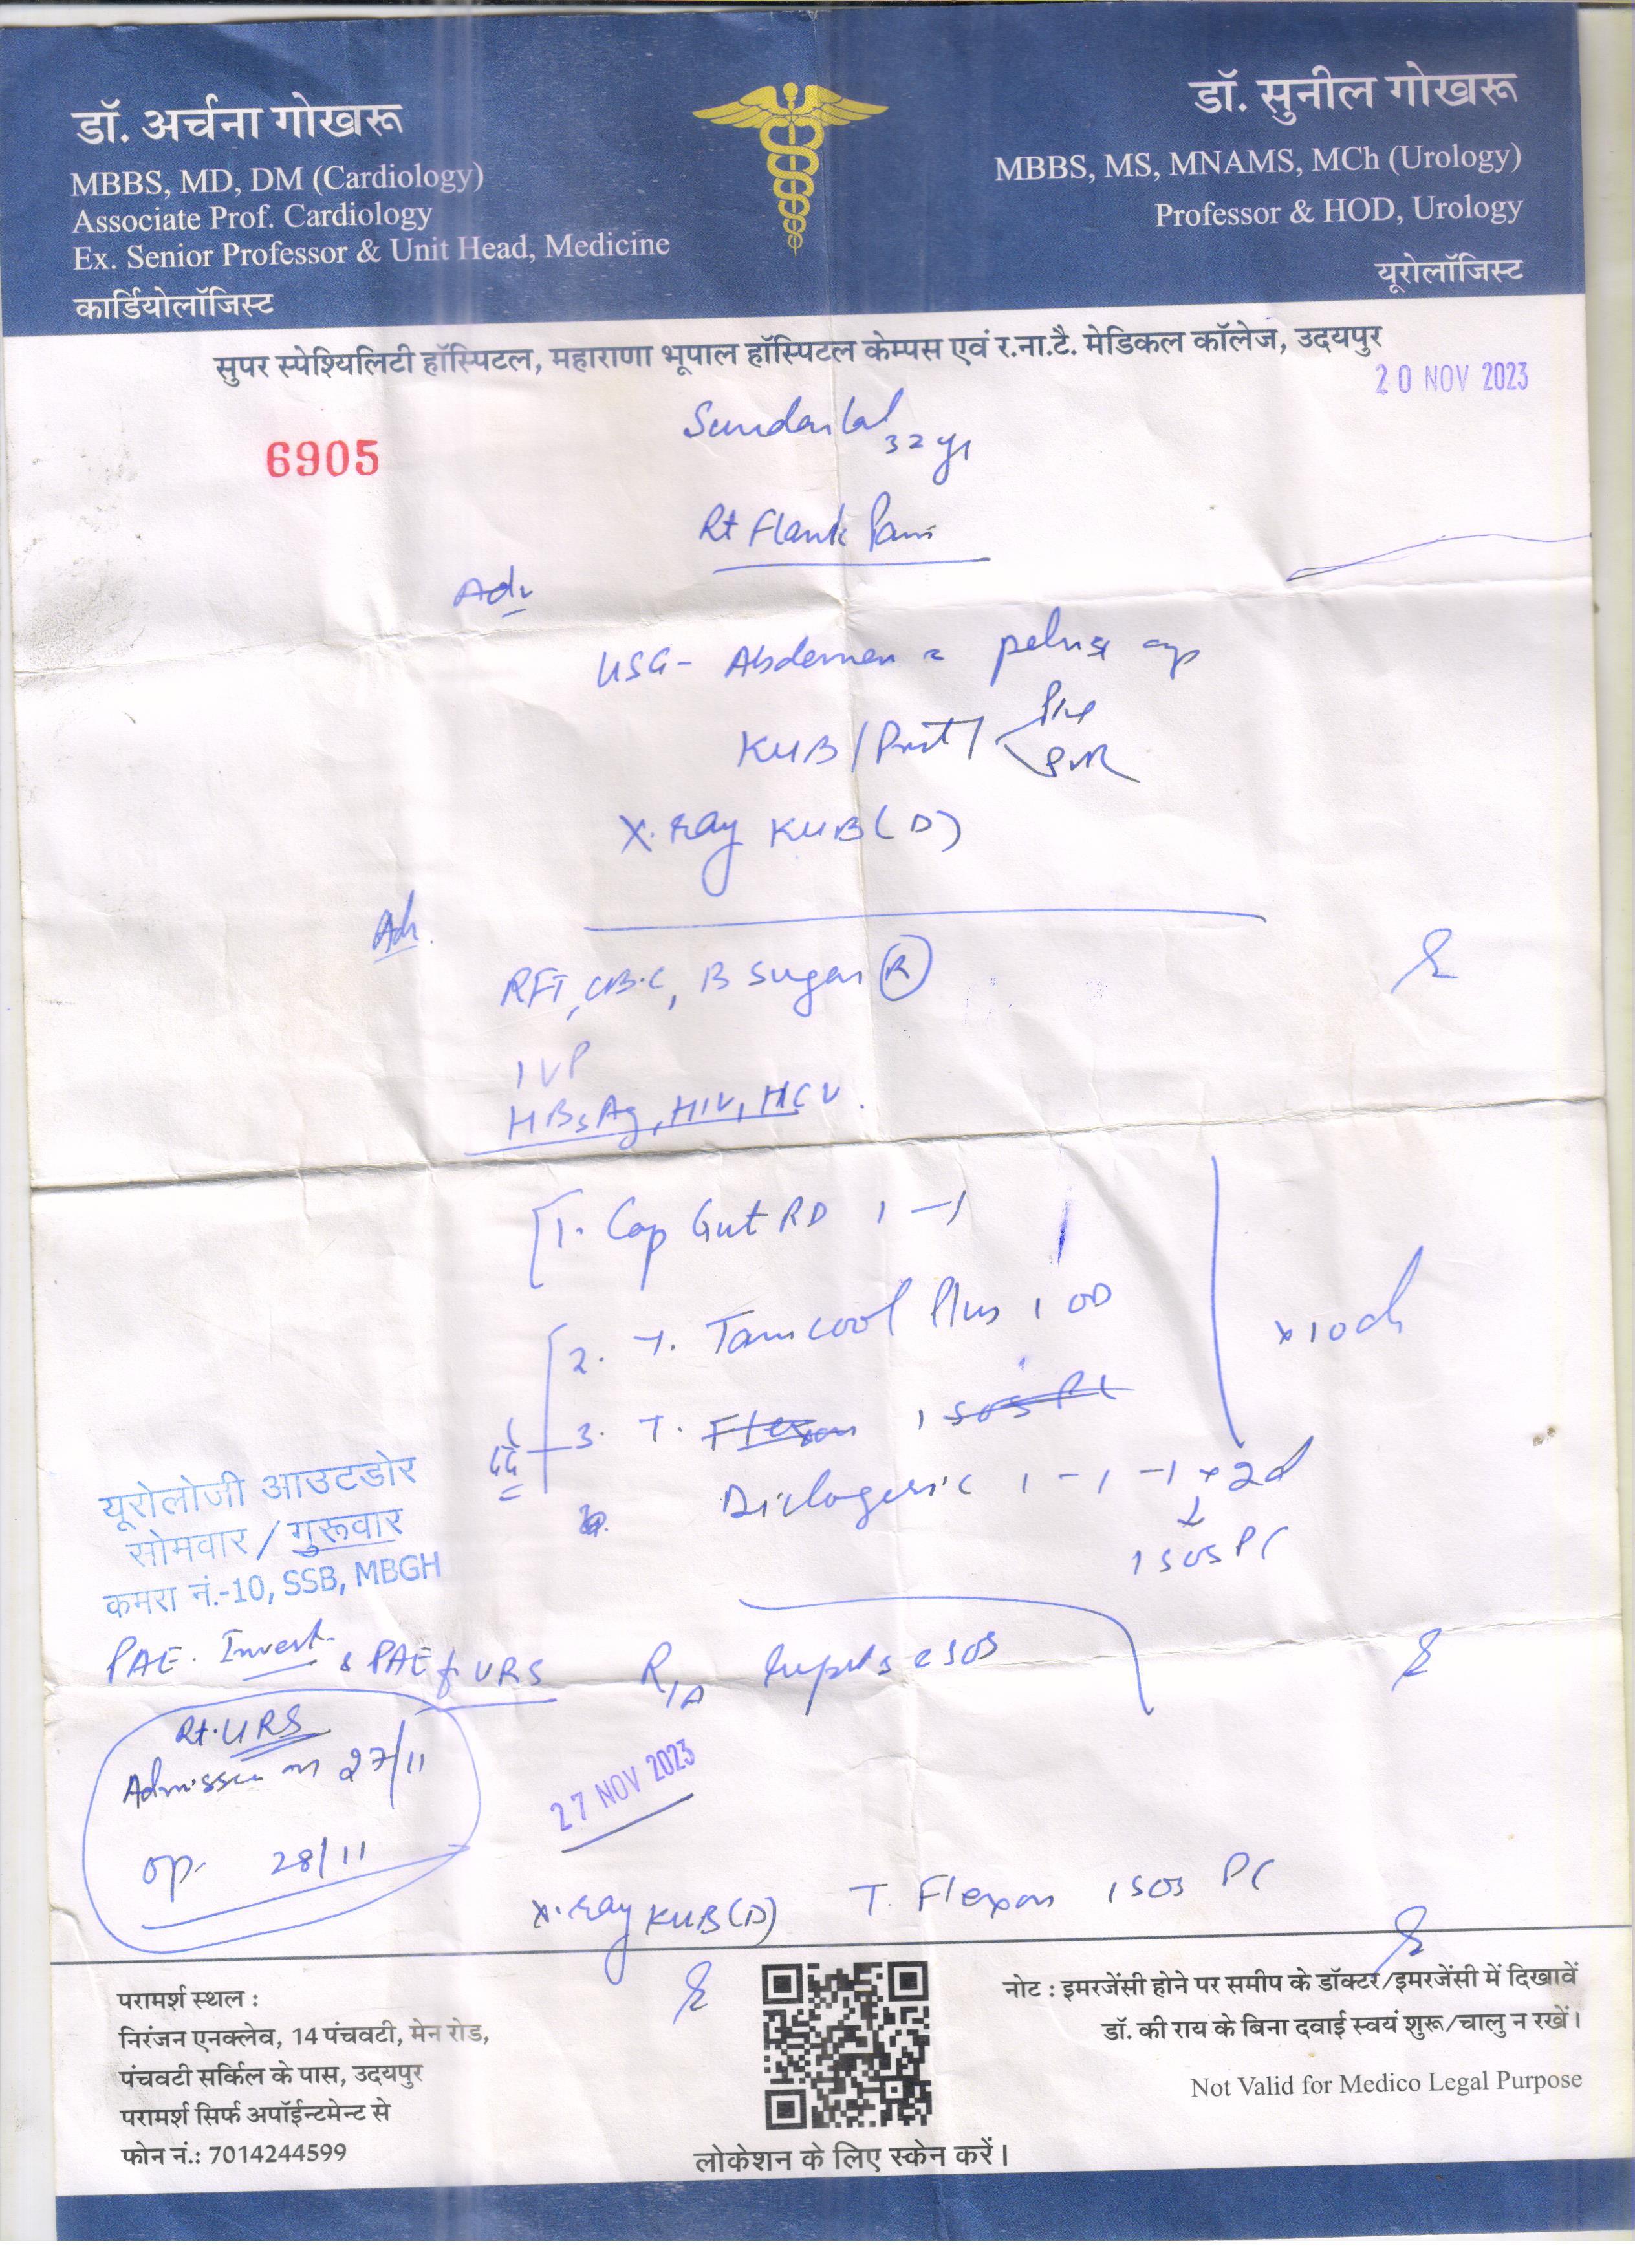 डॉ. अर्चना गोखरू
MBBS, MD, DM (Cardiology)
Associate Prof. Cardiology
Ex. Senior Professor & Unit Head, Medicine
कार्डियोलॉजिस्ट
डॉ. सुनील गोखरू
MBBS, MS, MNAMS, MCh (Urology)
Professor & HOD, Urology
यूरोलॉजिस्ट
सुपर स्पेश्यिलिटी हॉस्पिटल, महाराणा भूपाल हॉस्पिटल केम्पस एवं र.ना.टै. मेडिकल कॉलेज, उदयपुर
20 NOV 2023
6905
Sundarlal 32 yr
Rt Flank Pain
Adv
USG - Abdomen pelvis
KUB / Prost / Pre PVR
X.ray KUB (D)
Adv.
RFT, CB.C, B Sugar (R)
IVP
HBsAg, HIV, HCV.
1. Cap Gut RD 1 - 1
2. T. Tamcool Plus 1 OD
x 10 d
3. T. Flexon 1 SOS PC
Diclogesic 1 - 1 - 1 x 2d
1 SOS PC
यूरोलोजी आउटडोर
सोमवार / गुरूवार
कमरा नं.-10, SSB, MBGH
PAE. Invest. & PAE f URS
R/A reports SOS
Rt. URS
Admission on 27/11
op. 28/11
27 NOV 2023
X.ray KUB (D)
T. Flexon 1 SOS PC
परामर्श स्थल :
निरंजन एनक्लेव, 14 पंचवटी, मेन रोड,
पंचवटी सर्किल के पास, उदयपुर
परामर्श सिर्फ अपॉईन्टमेन्ट से
फोन नं.: 7014244599
लोकेशन के लिए स्केन करें।
नोट : इमरजेंसी होने पर समीप के डॉक्टर/इमरजेंसी में दिखावें
डॉ. की राय के बिना दवाई स्वयं शुरू/चालु न रखें।
Not Valid for Medico Legal Purpose